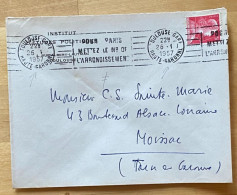 TOULOUSE GARE
26-1
1957
HTE-GARONNE
INSTITUT
POUR PARIS
METTEZ LE Nº DE
L'ARRONDISSEMENT
TOULOUSE GARE
26-1
1957
HTE-GARONNE
POUR
METTEZ
L'ARROND
Monsieur C. S. Sainte. Marie
43 Boulevard Alsace. Lorraine
Moissac
(Tarn et Garonne)